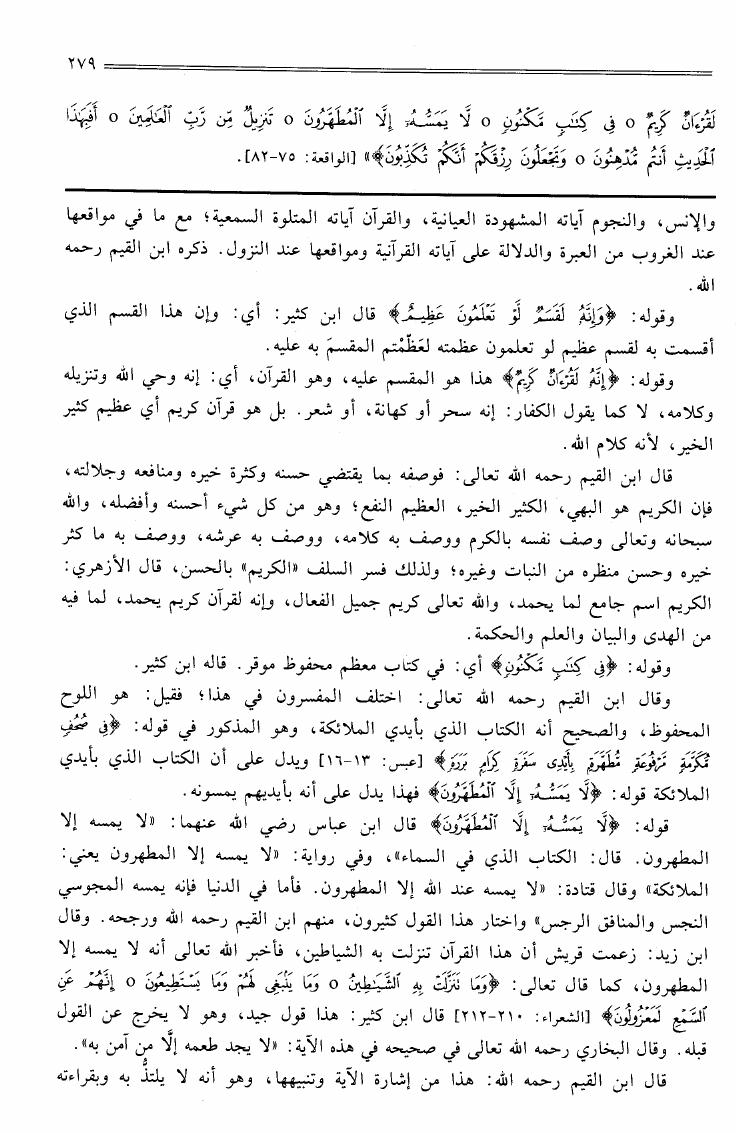 ٢٧٩
لَقُرْءَانٌ كَرِيمٌ ٥ فِى كِنَٰبٍ مَّكْنُونٍ ٥ لَّا يَمَسُّهُۥٓ إِلَّا ٱلْمُطَهَّرُونَ ٥ تَنزِيلٌ مِّن رَّبِّ ٱلْعَٰلَمِينَ ٥ أَفَبِهَٰذَا
ٱلْحَدِيثِ أَنتُم مُّدْهِنُونَ ٥ وَتَجْعَلُونَ رِزْقَكُمْ أَنَّكُمْ تُكَذِّبُونَ﴾» [الواقعة: ٧٥-٨٢].
والإنس، والنجوم آياته المشهودة العيانية، والقرآن آياته المتلوة السمعية؛ مع ما في مواقعها
عند الغروب من العبرة والدلالة على آياته القرآنية ومواقعها عند النزول. ذكره ابن القيم رحمه
الله.
وقوله: ﴿وَإِنَّهُۥ لَقَسَمٌ لَّوْ تَعْلَمُونَ عَظِيمٌ﴾ قال ابن كثير: أي: وإن هذا القسم الذي
أقسمت به لقسم عظيم لو تعلمون عظمته لعَظَّمْتم المقسمَ به عليه.
وقوله: ﴿إِنَّهُۥ لَقُرْءَانٌ كَرِيمٌ﴾ هذا هو المقسم عليه، وهو القرآن، أي: إنه وحي الله وتنزيله
وكلامه، لا كما يقول الكفار: إنه سحر أو كهانة، أو شعر. بل هو قرآن كريم أي عظيم كثير
الخير، لأنه كلام الله.
قال ابن القيم رحمه الله تعالى: فوصفه بما يقتضي حسنه وكثرة خيره ومنافعه وجلالته،
فإن الكريم هو البهي، الكثير الخير، العظيم النفع؛ وهو من كل شيء أحسنه وأفضله، والله
سبحانه وتعالى وصف نفسه بالكرم ووصف به كلامه، ووصف به عرشه، ووصف به ما كثر
خيره وحسن منظره من النبات وغيره؛ ولذلك فسر السلف «الكريم» بالحسن، قال الأزهري:
الكريم اسم جامع لما يحمد، والله تعالى كريم جميل الفعال، وإنه لقرآن كريم يحمد، لما فيه
من الهدى والبيان والعلم والحكمة.
وقوله: ﴿فِى كِنَٰبٍ مَّكْنُونٍ﴾ أي: في كتاب معظم محفوظ موقر. قاله ابن كثير.
وقال ابن القيم رحمه الله تعالى: اختلف المفسرون في هذا؛ فقيل: هو اللوح
المحفوظ، والصحيح أنه الكتاب الذي بأيدي الملائكة، وهو المذكور في قوله: ﴿فِى صُحُفٍ
مُّكَرَّمَةٍ مَّرْفُوعَةٍ مُّطَهَّرَةٍ بِأَيْدِى سَفَرَةٍ كِرَامٍ بَرَرَةٍ﴾ [عبس: ١٣-١٦] ويدل على أن الكتاب الذي بأيدي
الملائكة قوله: ﴿لَّا يَمَسُّهُۥٓ إِلَّا ٱلْمُطَهَّرُونَ﴾ فهذا يدل على أنه بأيديهم يمسونه.
قوله: ﴿لَّا يَمَسُّهُۥٓ إِلَّا ٱلْمُطَهَّرُونَ﴾ قال ابن عباس رضي الله عنهما: «لا يمسه إلا
المطهرون. قال: الكتاب الذي في السماء»، وفي رواية: «لا يمسه إلا المطهرون يعني:
الملائكة» وقال قتادة: «لا يمسه عند الله إلا المطهرون. فأما في الدنيا فإنه يمسه المجوسي
النجس والمنافق الرجس» واختار هذا القول كثيرون، منهم ابن القيم رحمه الله ورجحه. وقال
ابن زيد: زعمت قريش أن هذا القرآن تنزلت به الشياطين، فأخبر الله تعالى أنه لا يمسه إلا
المطهرون، كما قال تعالى: ﴿وَمَا نَنَزَّلَتْ بِهِ ٱلشَّيَٰطِينُ ٥ وَمَا يَنۢبَغِى لَهُمْ وَمَا يَسْتَطِيعُونَ ٥ إِنَّهُمْ عَنِ
ٱلسَّمْعِ لَمَعْزُولُونَ﴾ [الشعراء: ٢١٠-٢١٢] قال ابن كثير: هذا قول جيد، وهو لا يخرج عن القول
قبله. وقال البخاري رحمه الله تعالى في صحيحه في هذه الآية: «لا يجد طعمه إلَّا من آمن به».
قال ابن القيم رحمه الله: هذا من إشارة الآية وتنبيهها، وهو أنه لا يلتذُّ به وبقراءته